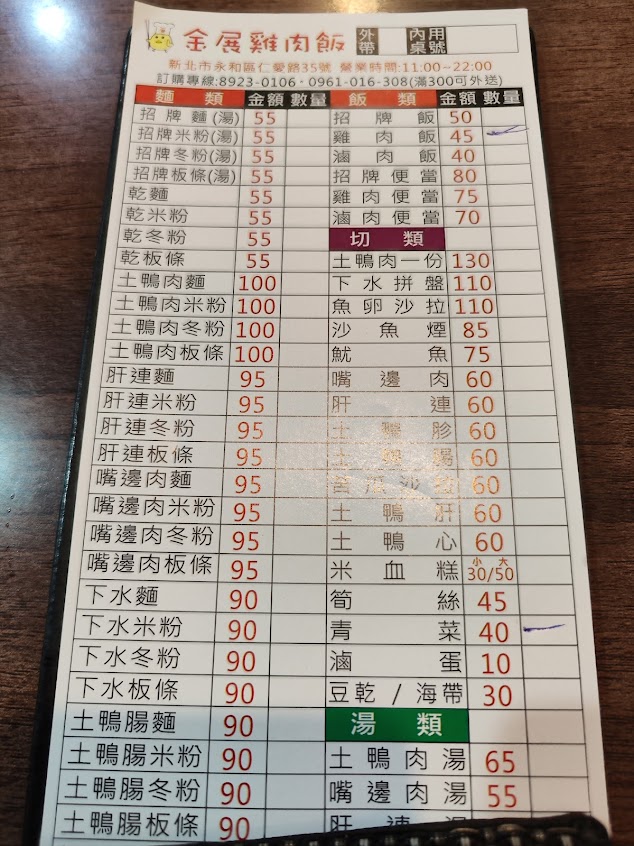 金展雞肉飯 外帶 內用 桌號
新北市永和區仁愛路35號 營業時間:11:00~22:00
訂購專線:8923-0106・0961-016-308(滿300可外送)
麵類 金額 數量 飯類 金額 數量
招牌麵(湯) 55 招牌飯 50
招牌米粉(湯) 55 雞肉飯 45
招牌冬粉(湯) 55 滷肉飯 40
招牌板條(湯) 55 招牌便當 80
乾麵 55 雞肉便當 75
乾米粉 55 滷肉便當 70
乾冬粉 55 切類
乾板條 55 土鴨肉一份 130
土鴨肉麵 100 下水拼盤 110
土鴨肉米粉 100 魚卵沙拉 110
土鴨肉冬粉 100 沙魚煙 85
土鴨肉板條 100 魷魚 75
肝連麵 95 嘴邊肉 60
肝連米粉 95 肝連 60
肝連冬粉 95 土鴨胗 60
肝連板條 95 土鴨腸 60
嘴邊肉麵 95 苦瓜沙拉 60
嘴邊肉米粉 95 土鴨肝 60
嘴邊肉冬粉 95 土鴨心 60
嘴邊肉板條 95 米血糕 小大 30/50
下水麵 90 筍絲 45
下水米粉 90 青菜 40
下水冬粉 90 滷蛋 10
下水板條 90 豆乾/海帶 30
土鴨腸麵 90 湯類
土鴨腸米粉 90 土鴨肉湯 65
土鴨腸冬粉 90 嘴邊肉湯 55
土鴨腸板條 90 肝連湯